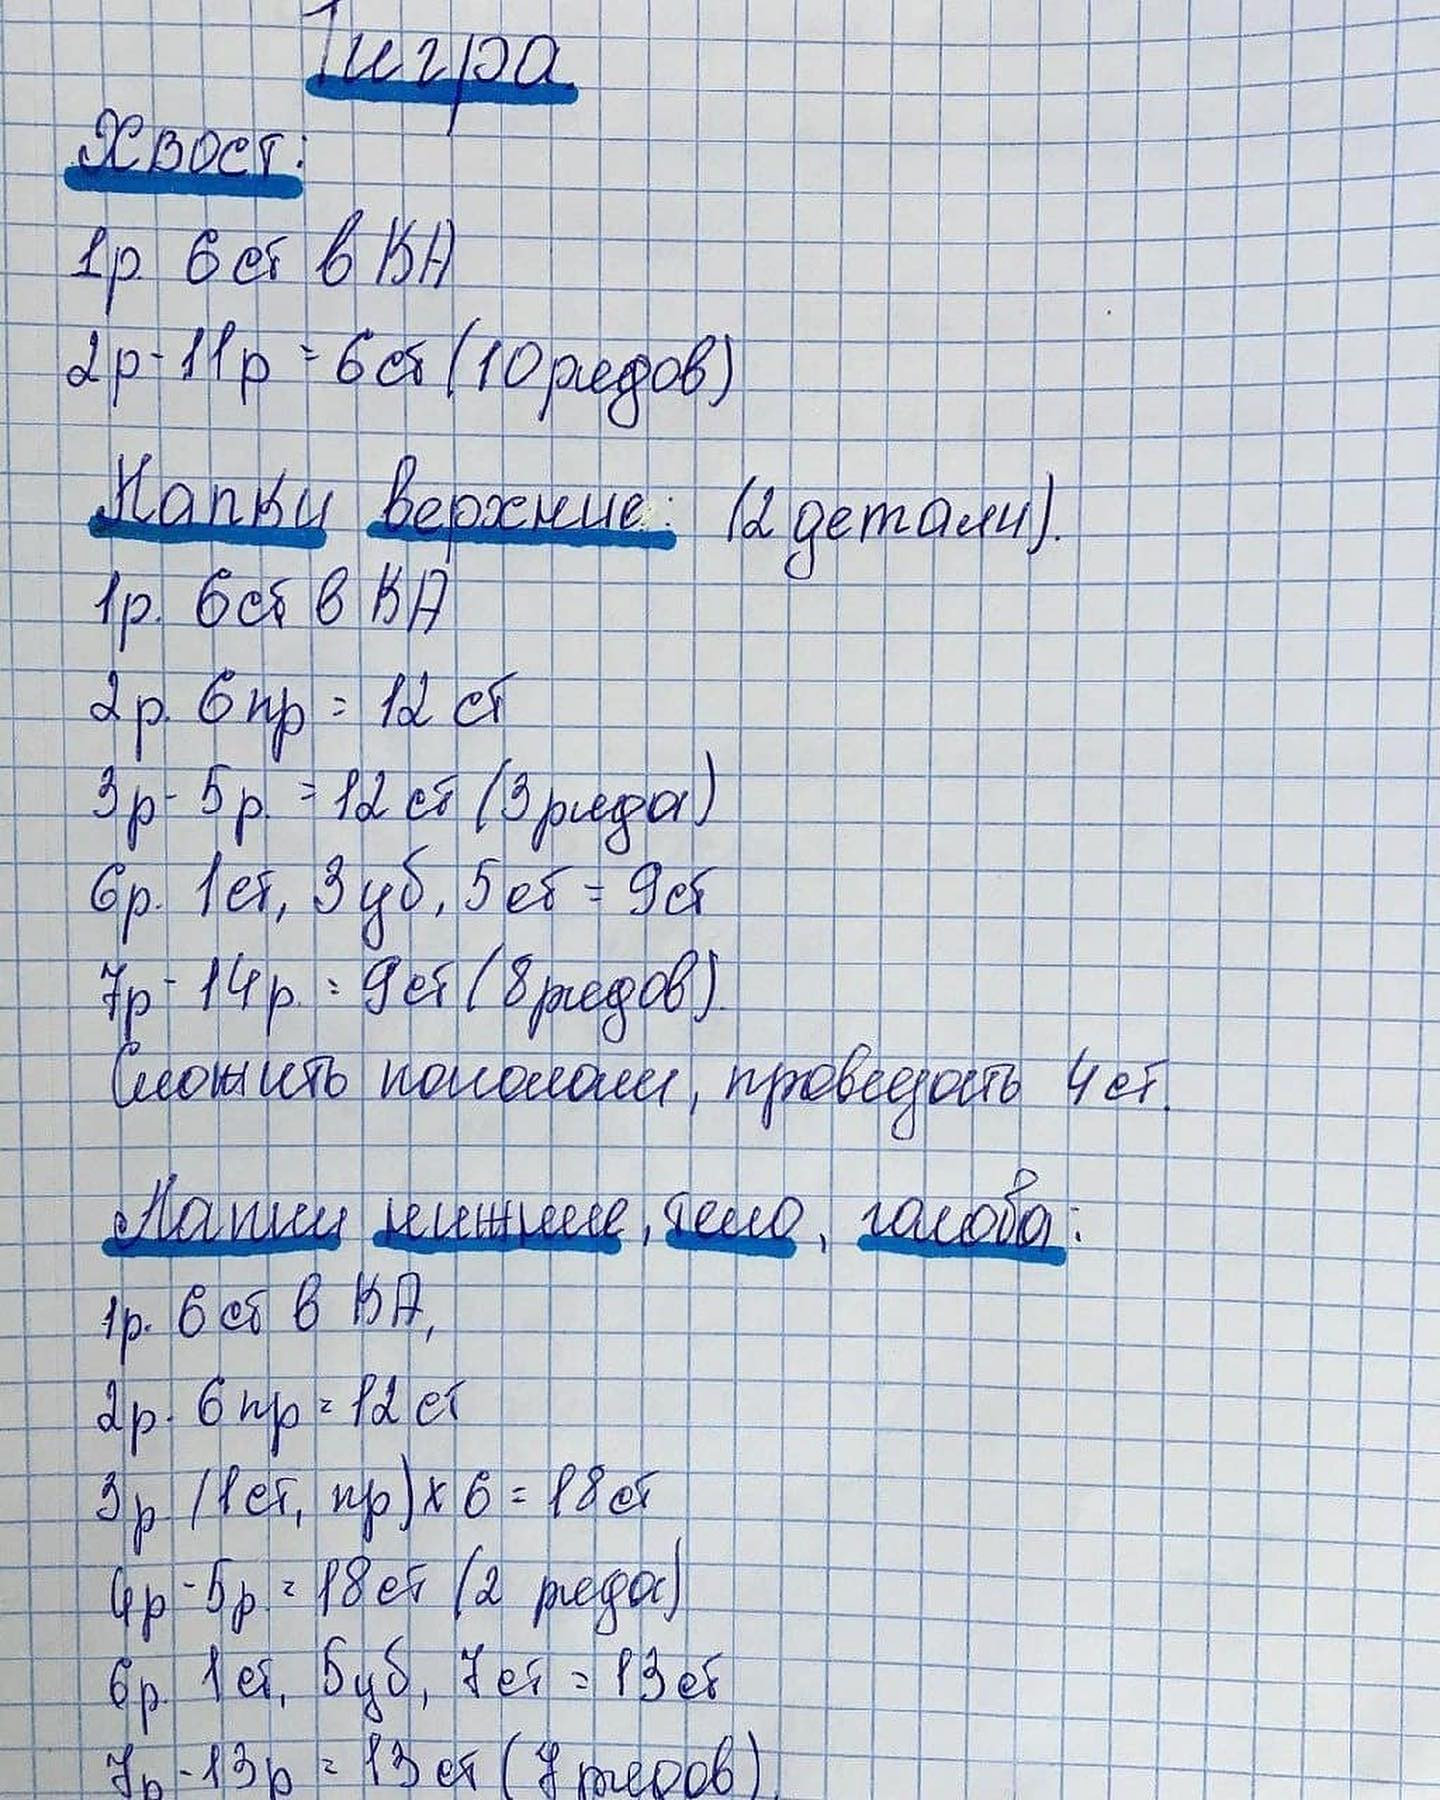 Тигра
Хвост:
1р. 6 ст в КА
2р - 11р = 6 ст (10 рядов)
Лапки верхние: (2 детали).
1р. 6 ст в КА
2р. 6 пр = 12 ст
3р - 5р. = 12 ст (3 ряда)
6р. 1 ст, 3 уб, 5 ст = 9 ст
7р - 14р. = 9 ст (8 рядов).
Сложить пополам, провязать 4 ст.
Лапки нижние, тело, голова:
1р. 6 ст в КА,
2р. 6 пр = 12 ст
3р (1 ст, пр) х 6 = 18 ст
4р - 5р. = 18 ст (2 ряда)
6р. 1 ст, 5 уб, 7 ст = 13 ст
7р - 13р = 13 ст (7 рядов)